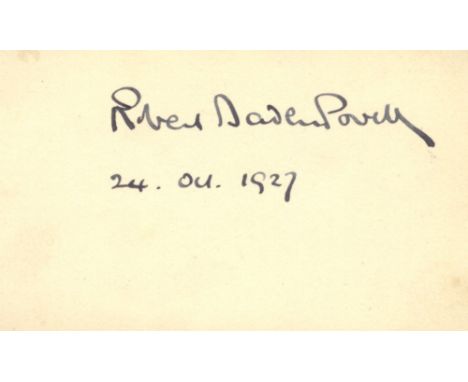 Robert Baden Powell
24. Oct. 1927